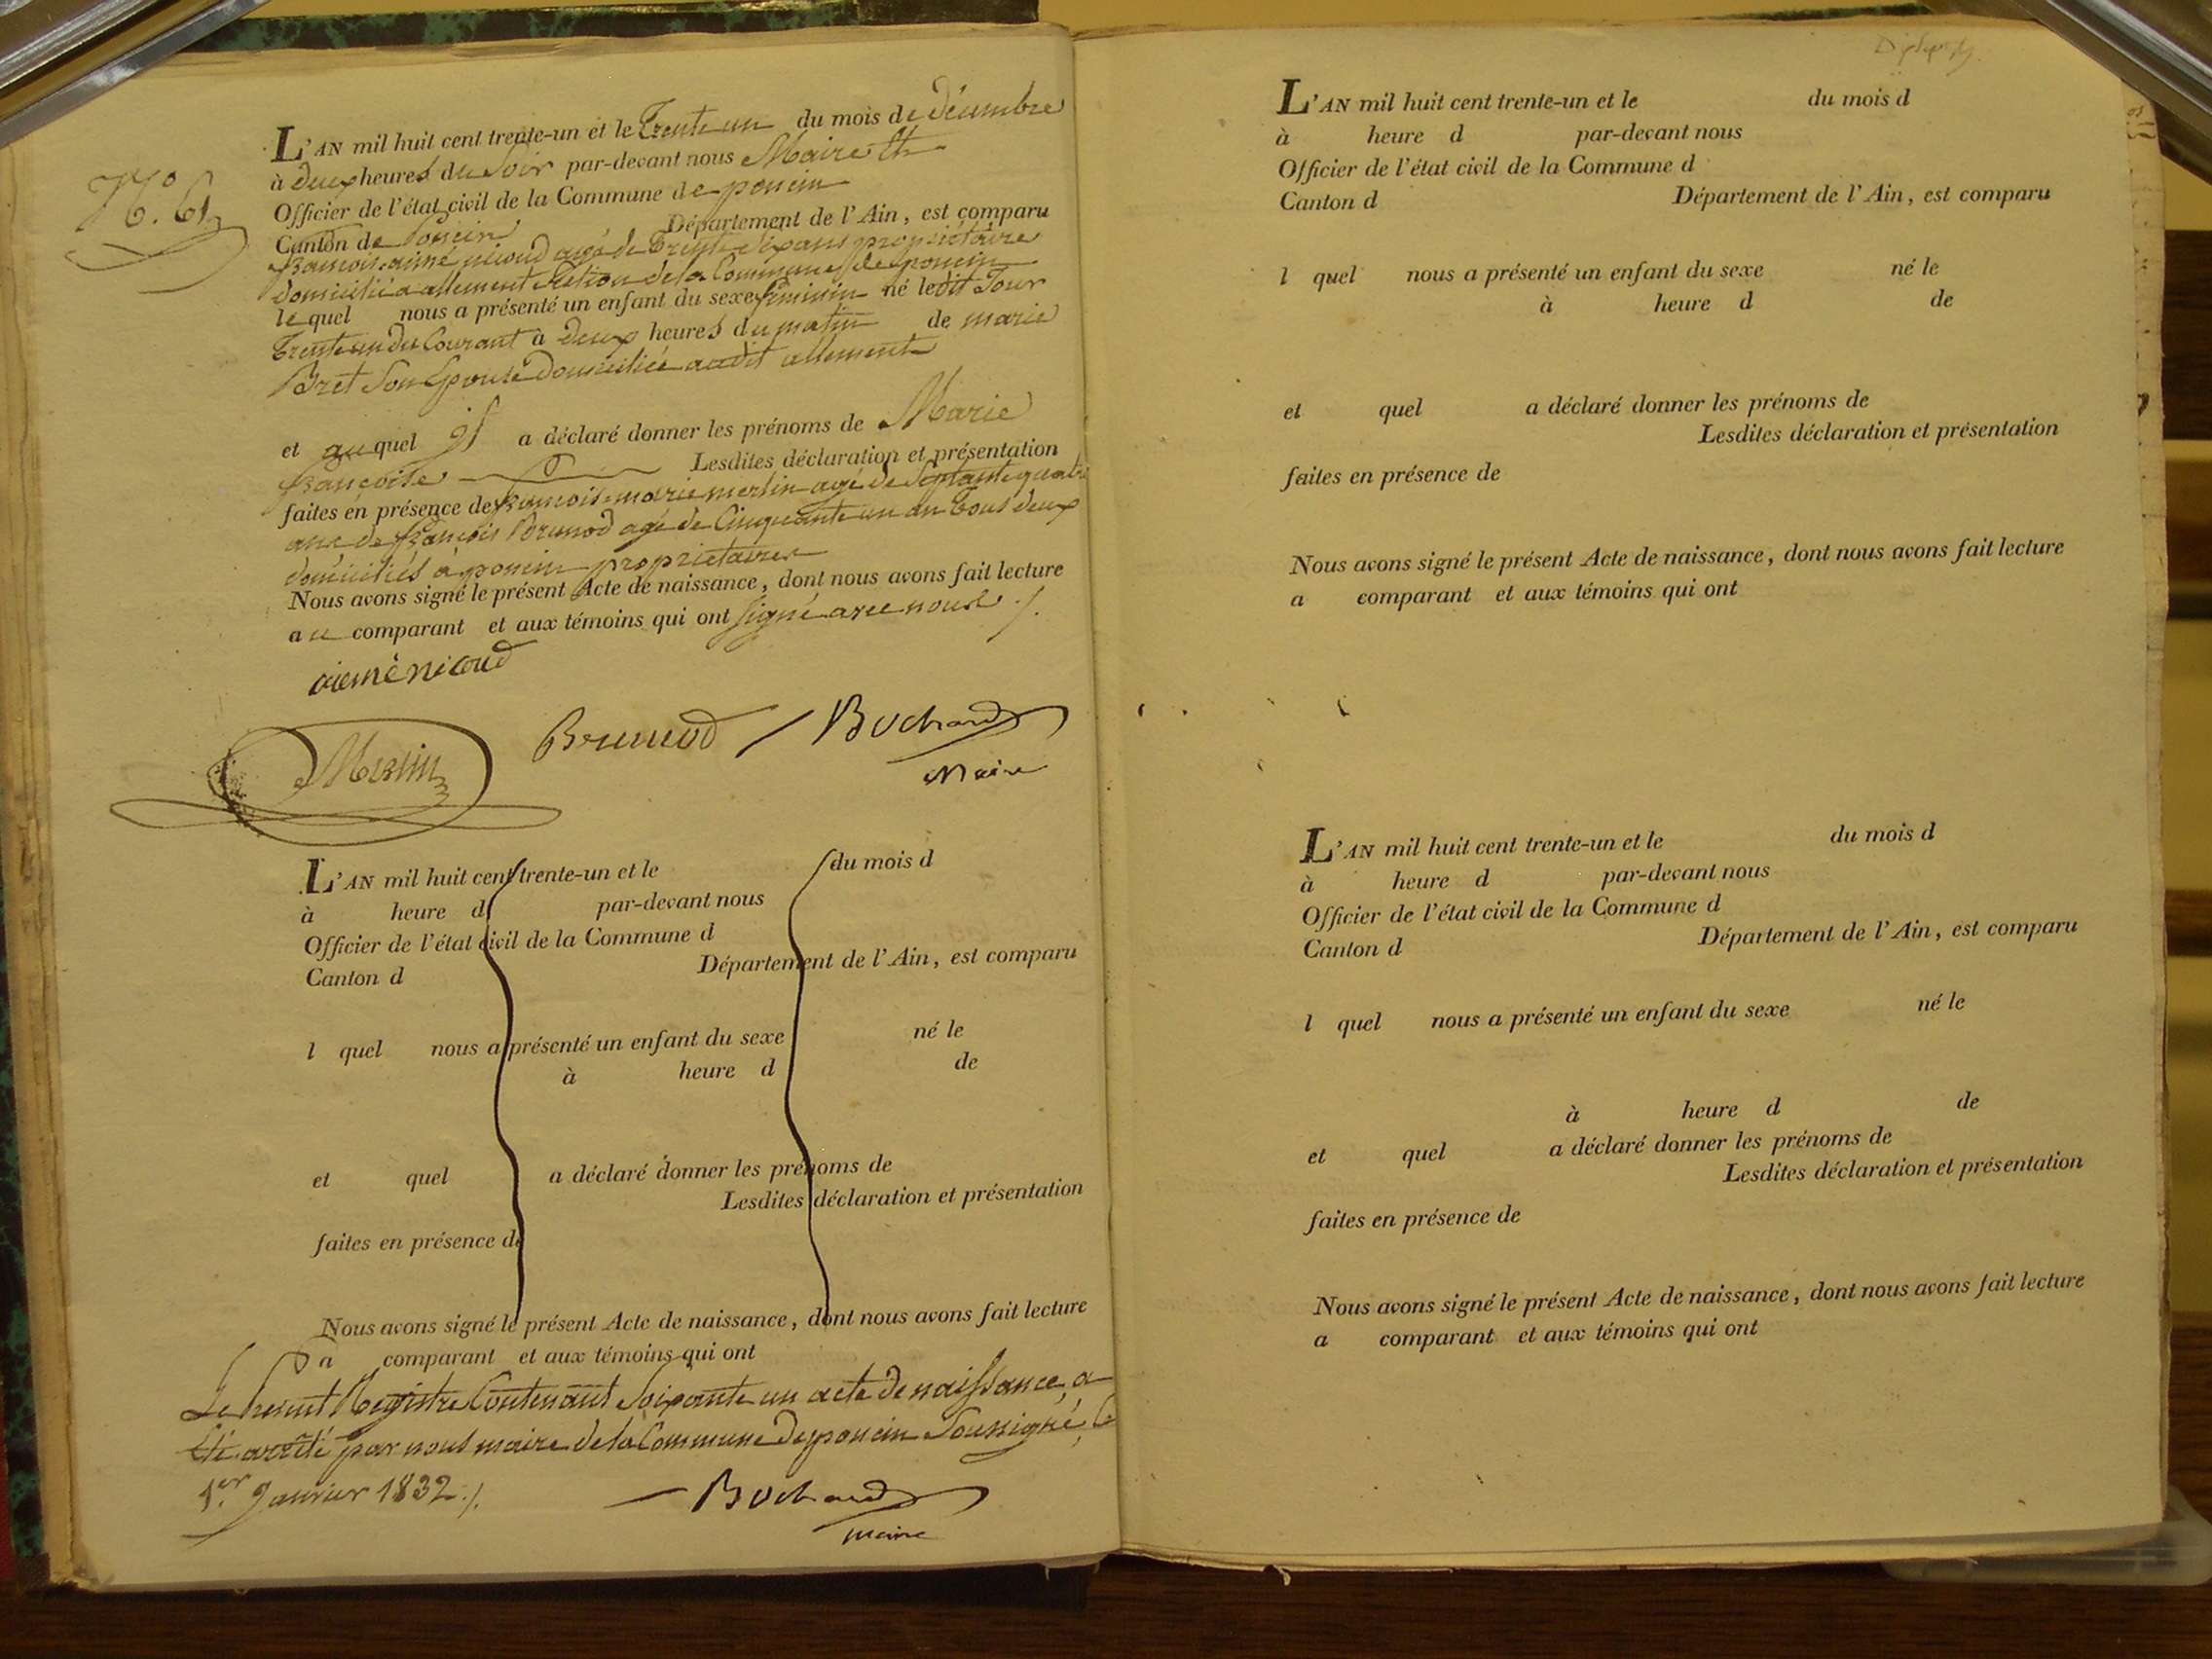 N.° 61
L'AN mil huit cent trente-un et le Trente un du mois de décembre
à deux heures du Soir par-devant nous Maire &
Officier de l'état civil de la Commune de poncin
Canton de Poncin Département de l'Ain, est comparu
françois-aimé nicoud agé de Trente six ans propriétaire
domicilié a allement Section de la Commune de poncin
lequel nous a présenté un enfant du sexe féminin né le dit Jour
Trente un du Courant à deux heures du matin de marie
Bret Son Epouse domiciliée audit allement
et auquel il a déclaré donner les prénoms de Marie
françoise Lesdites déclaration et présentation
faites en présence de françois-marie merlin agé de Septante quatre
ans de françois Brunod agé de Cinquante un an Tous deux
domiciliés à poncin propriétaires
Nous avons signé le présent Acte de naissance, dont nous avons fait lecture
au comparant et aux témoins qui ont signé avec nous ./.
aiemé nicoud
Merlin Brunod Bochard
Maire
L'AN mil huit cent trente-un et le du mois d
à heure d par-devant nous
Officier de l'état civil de la Commune d
Canton d Département de l'Ain, est comparu
l quel nous a présenté un enfant du sexe né le
à heure d de
et quel a déclaré donner les prénoms de
Lesdites déclaration et présentation
faites en présence de
Nous avons signé le présent Acte de naissance, dont nous avons fait lecture
a comparant et aux témoins qui ont
Le Présent Registre Contenant Soixante un acte de naissance, a
été arrêté par nous maire de la Commune de poncin Soussigné, le
1.er Janvier 1832 ./.
Bochard
maire
L'AN mil huit cent trente-un et le du mois d
à heure d par-devant nous
Officier de l'état civil de la Commune d
Canton d Département de l'Ain, est comparu
l quel nous a présenté un enfant du sexe né le
à heure d de
et quel a déclaré donner les prénoms de
Lesdites déclaration et présentation
faites en présence de
Nous avons signé le présent Acte de naissance, dont nous avons fait lecture
a comparant et aux témoins qui ont
L'AN mil huit cent trente-un et le du mois d
à heure d par-devant nous
Officier de l'état civil de la Commune d
Canton d Département de l'Ain, est comparu
l quel nous a présenté un enfant du sexe né le
à heure d de
et quel a déclaré donner les prénoms de
Lesdites déclaration et présentation
faites en présence de
Nous avons signé le présent Acte de naissance, dont nous avons fait lecture
a comparant et aux témoins qui ont